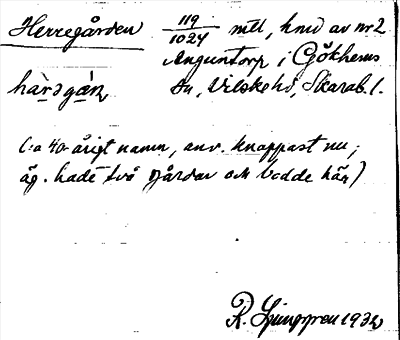 Herregården 119/1024 mtl, hmd av nr 2
Anguntorp i Gökhems
sn, Vilske hd, Skarab. l.
hæ̀rəgá̀ṇ
(c:a 40-årigt namn, anv. knappast nu;
äg. hade två gårdar och bodde här)
R. Ljunggren 1932